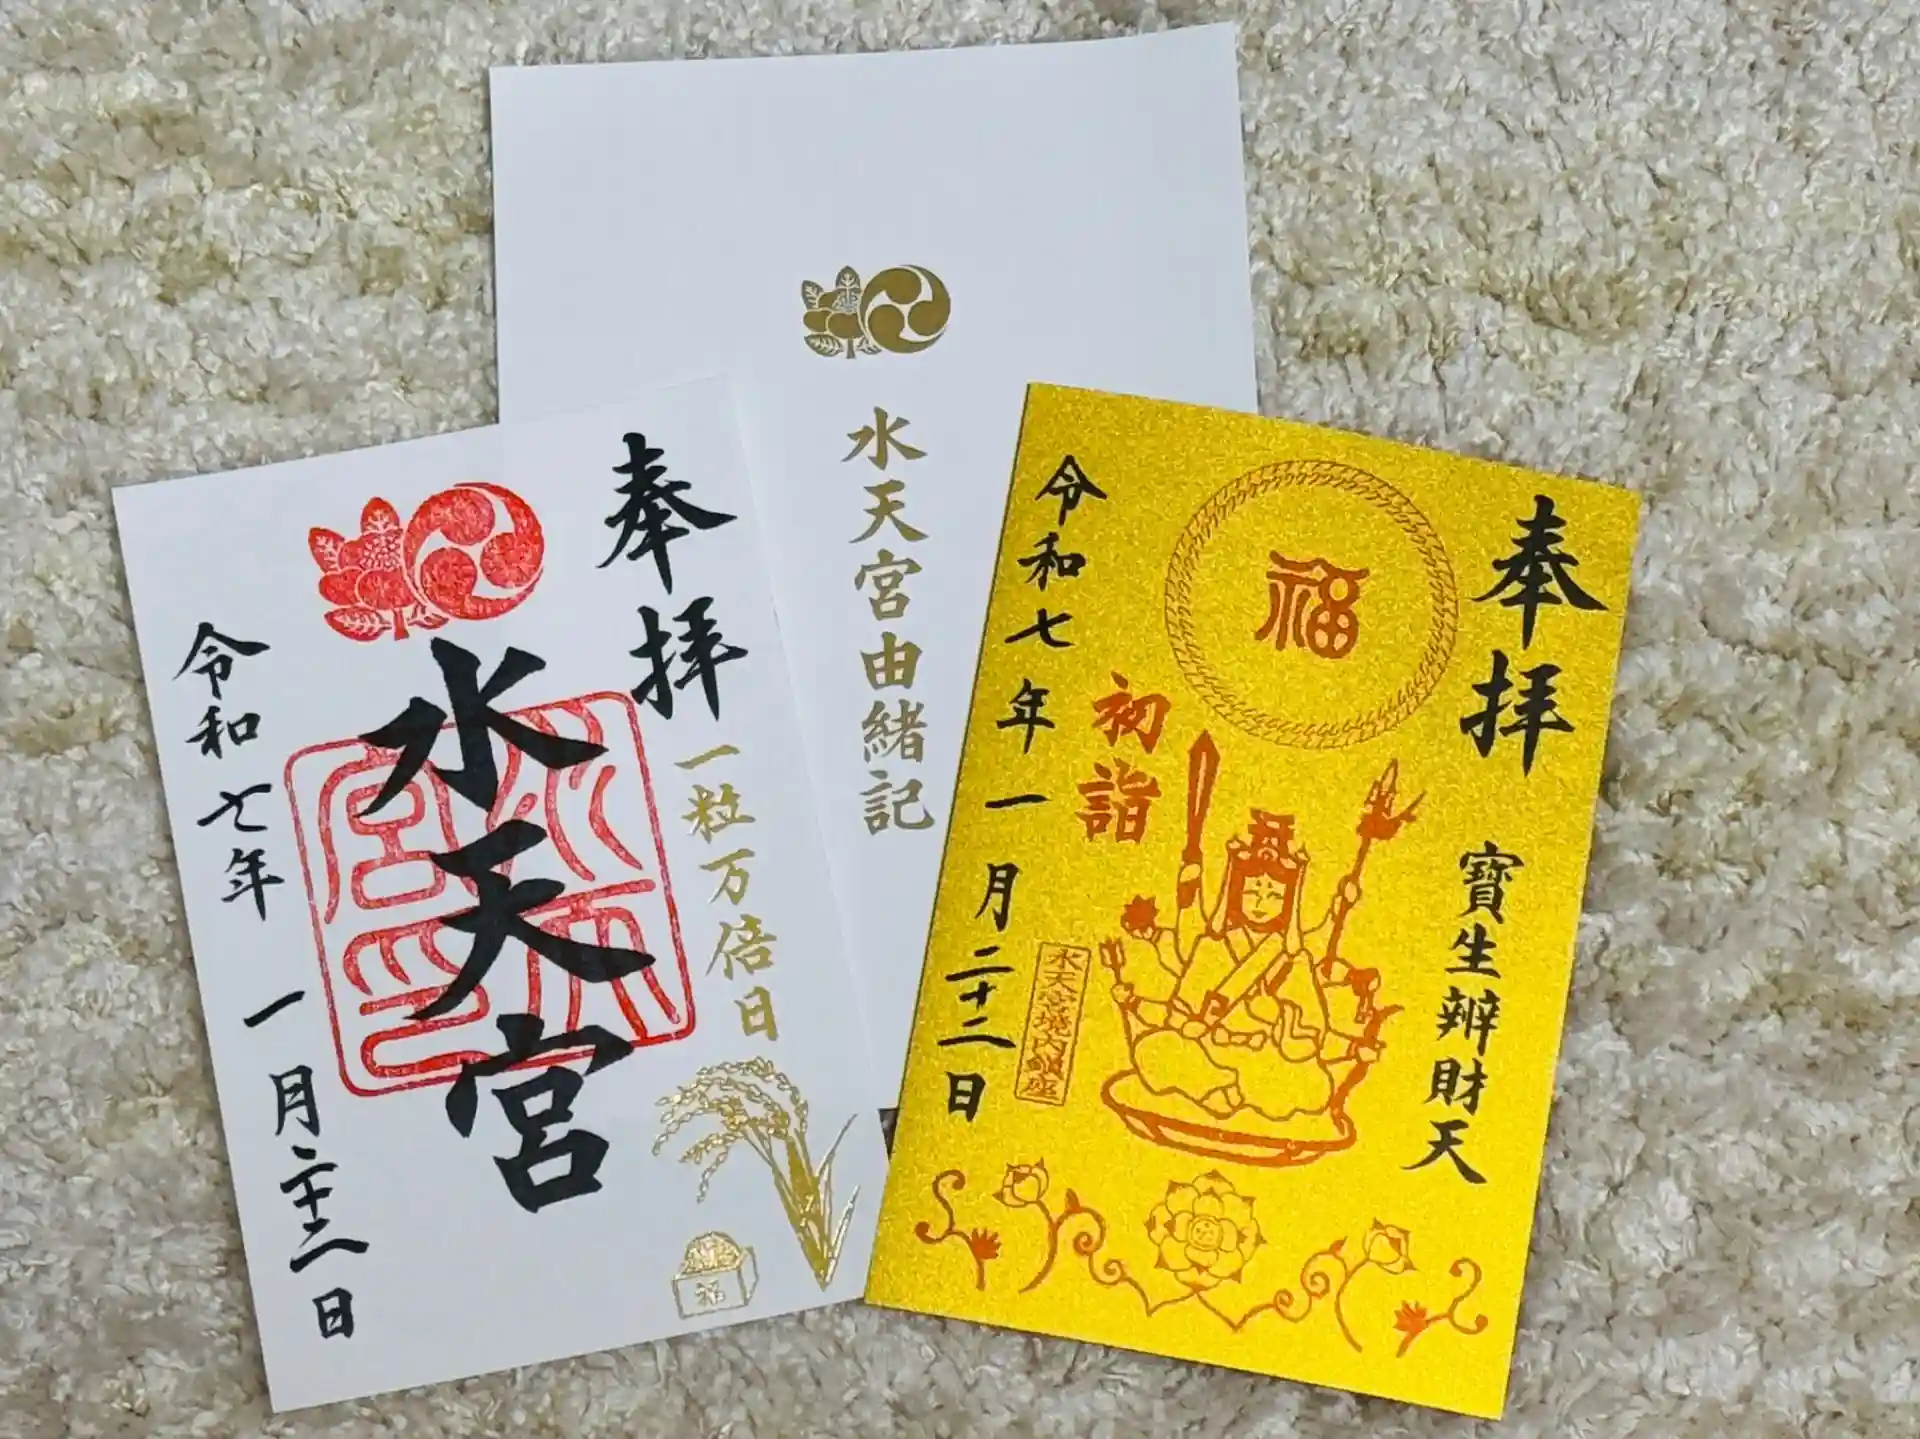 水天宮由緒記
奉拝
一粒万倍日
水天宮
令和七年一月二十二日
福
奉拝
寶生辨財天
福
初詣
水天宮境内鎮座
令和七年一月二十二日